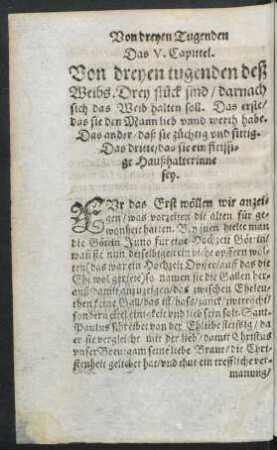 Von dreyen Tugenden
Das V. Capittel.
Von dreyen tugenden deß
Weibs. Drey stück sind / darnach
sich das Weib halten soll. Das erste /
das sie den Mann lieb vnnd werth habe.
Das ander / daß sie züchtig vnd sittig.
Das dritte / das sie ein fleissi-
ge Haußhalterinne
sey.
FUr das Erst wöllen wir anzei-
gen / was vorzeiten die alten für ge-
wonheit hatten. Bey jnen hielte man
die Göttin Juno für eine Hochzeit Göttin /
wañ sie nun derselbigen ein viehe opffern wol-
ten / das war ein Hochzeit Opffer / auff das die
Ehe wol geriete) so namen sie die Gallen her-
auß / damit anzuzeigen / das zwischen Eheleu-
then keine Gall / das ist / haß / zanck / zwitracht /
sondern eitel einigkeit vnd lieb sein solt. Sant
Paulus schreibet von der Ehliche fleissig / da
er sie vergleicht mit der lieb / damit Christus
vnser Breutgam seine liebe Braut / die Chri-
stenheit geliebet hat / vnd thut ein treffliche ver-
manung /